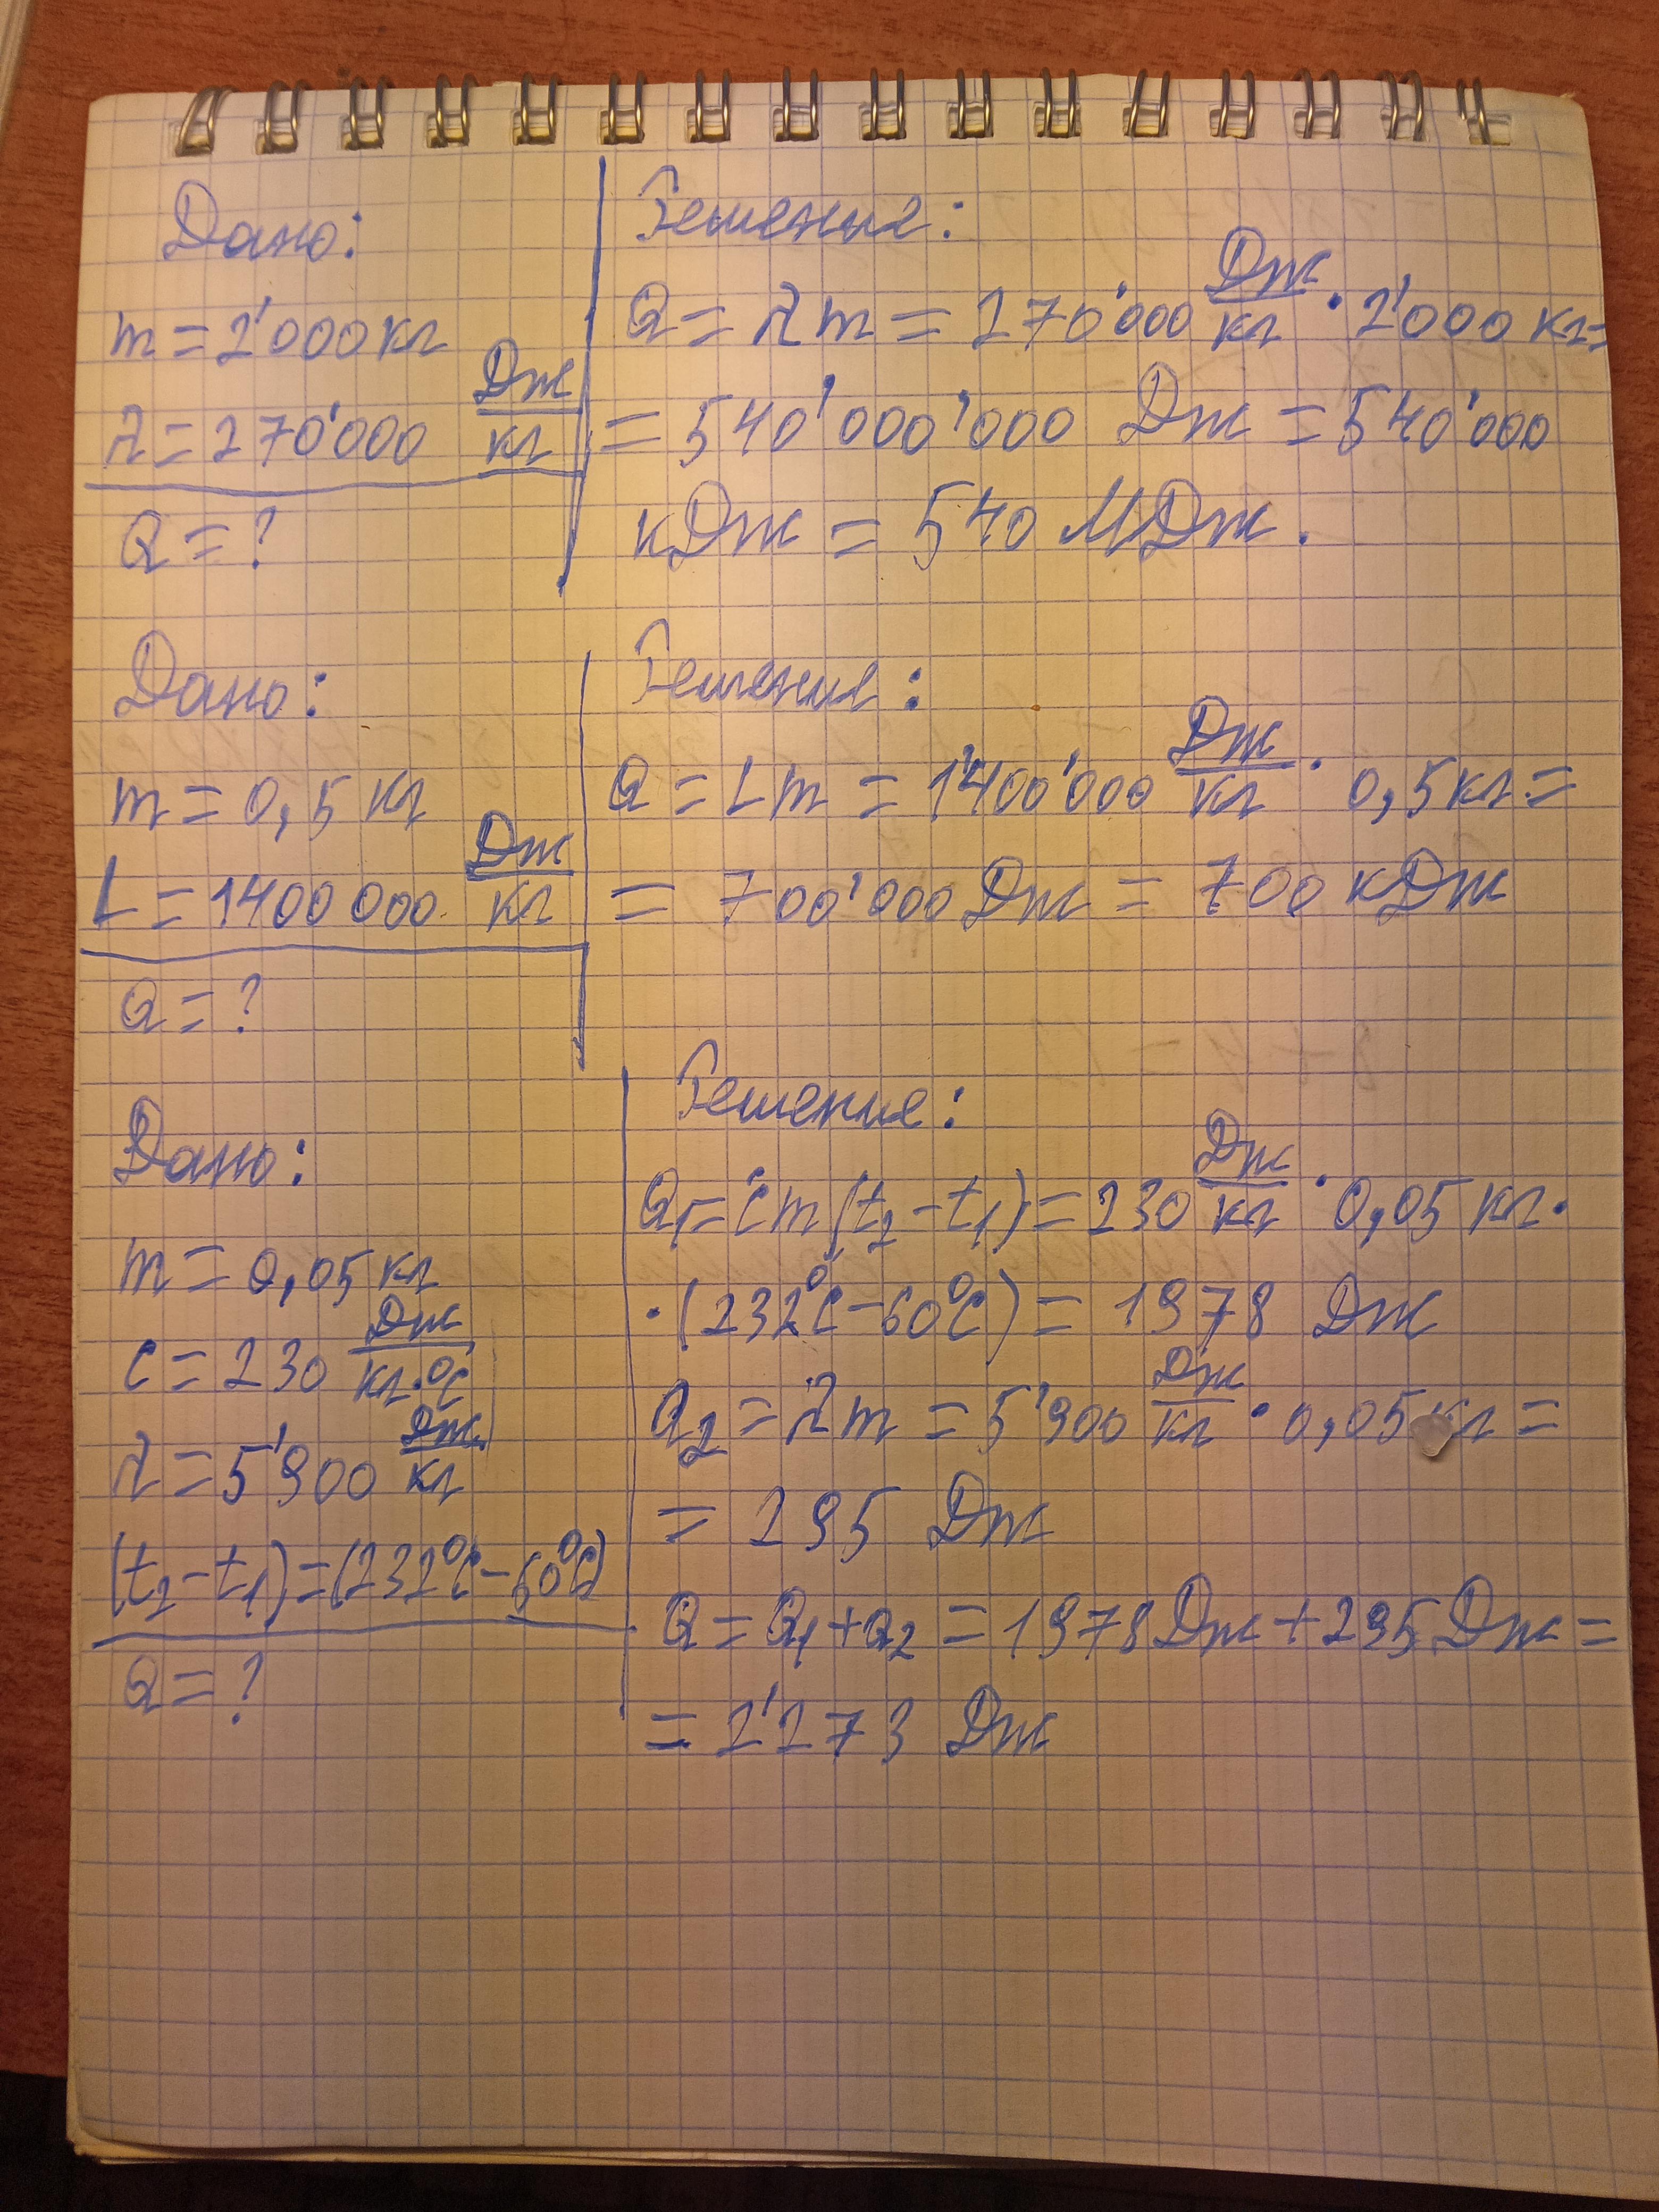 Дано:
m = 2'000 кг
λ = 270'000 Дж/кг
Q = ?
Решение:
Q = λm = 270'000 Дж/кг · 2'000 кг =
= 540'000'000 Дж = 540'000
кДж = 540 МДж.
Дано:
m = 0,5 кг
L = 1400 000 Дж/кг
Q = ?
Решение:
Q = Lm = 1'400'000 Дж/кг · 0,5 кг =
= 700'000 Дж = 700 кДж
Дано:
m = 0,05 кг
c = 230 Дж/кг·°C
λ = 5'900 Дж/кг
(t₂ - t₁) = (232°C - 60°C)
Q = ?
Решение:
Q₁ = cm(t₂ - t₁) = 230 Дж/кг · 0,05 кг ·
· (232°C - 60°C) = 1978 Дж
Q₂ = λm = 5'900 Дж/кг · 0,05 кг =
= 295 Дж
Q = Q₁ + Q₂ = 1978 Дж + 295 Дж =
= 2'273 Дж